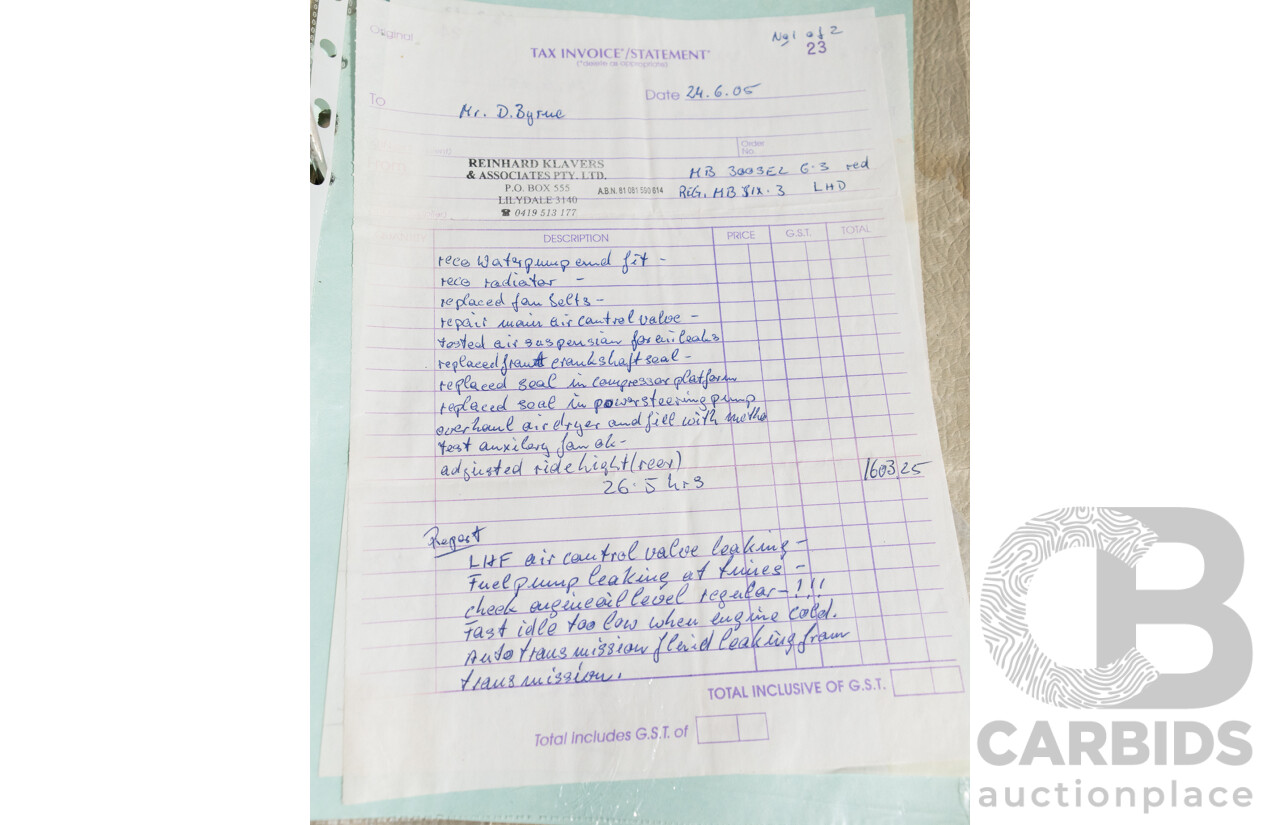 Original
No 1 of 2
TAX INVOICE*/STATEMENT*
23
(*delete as appropriate)
Date 24.6.05
To
Mr. D. Byrne
Order
No.
From
REINHARD KLAVERS
& ASSOCIATES PTY. LTD.
P.O. BOX 555
A.B.N. 61 081 590 614
LILYDALE 3140
☎ 0419 513 177
MB 300SEL 6.3 red
REG. MB SIX.3 LHD
DESCRIPTION PRICE G.S.T. TOTAL
reco waterpump and fit -
reco radiator -
replaced fan belts -
repair main air control valve -
tested air suspension for air leaks
replaced front crankshaft seal -
replaced seal in compressor platform
replaced seal in powersteering pump
overhaul air dryer and fill with metho
test auxilary fan ok -
adjusted ride hight (rear)
26.5 hrs 1603.25
Report
LHF air control valve leaking -
Fuel pump leaking at times -
check engine oil level regular - !!!
Fast idle too low when engine cold.
Auto transmission fluid leaking from
transmission.
TOTAL INCLUSIVE OF G.S.T.
Total Includes G.S.T. of
CB
CARBIDS
auctionplace